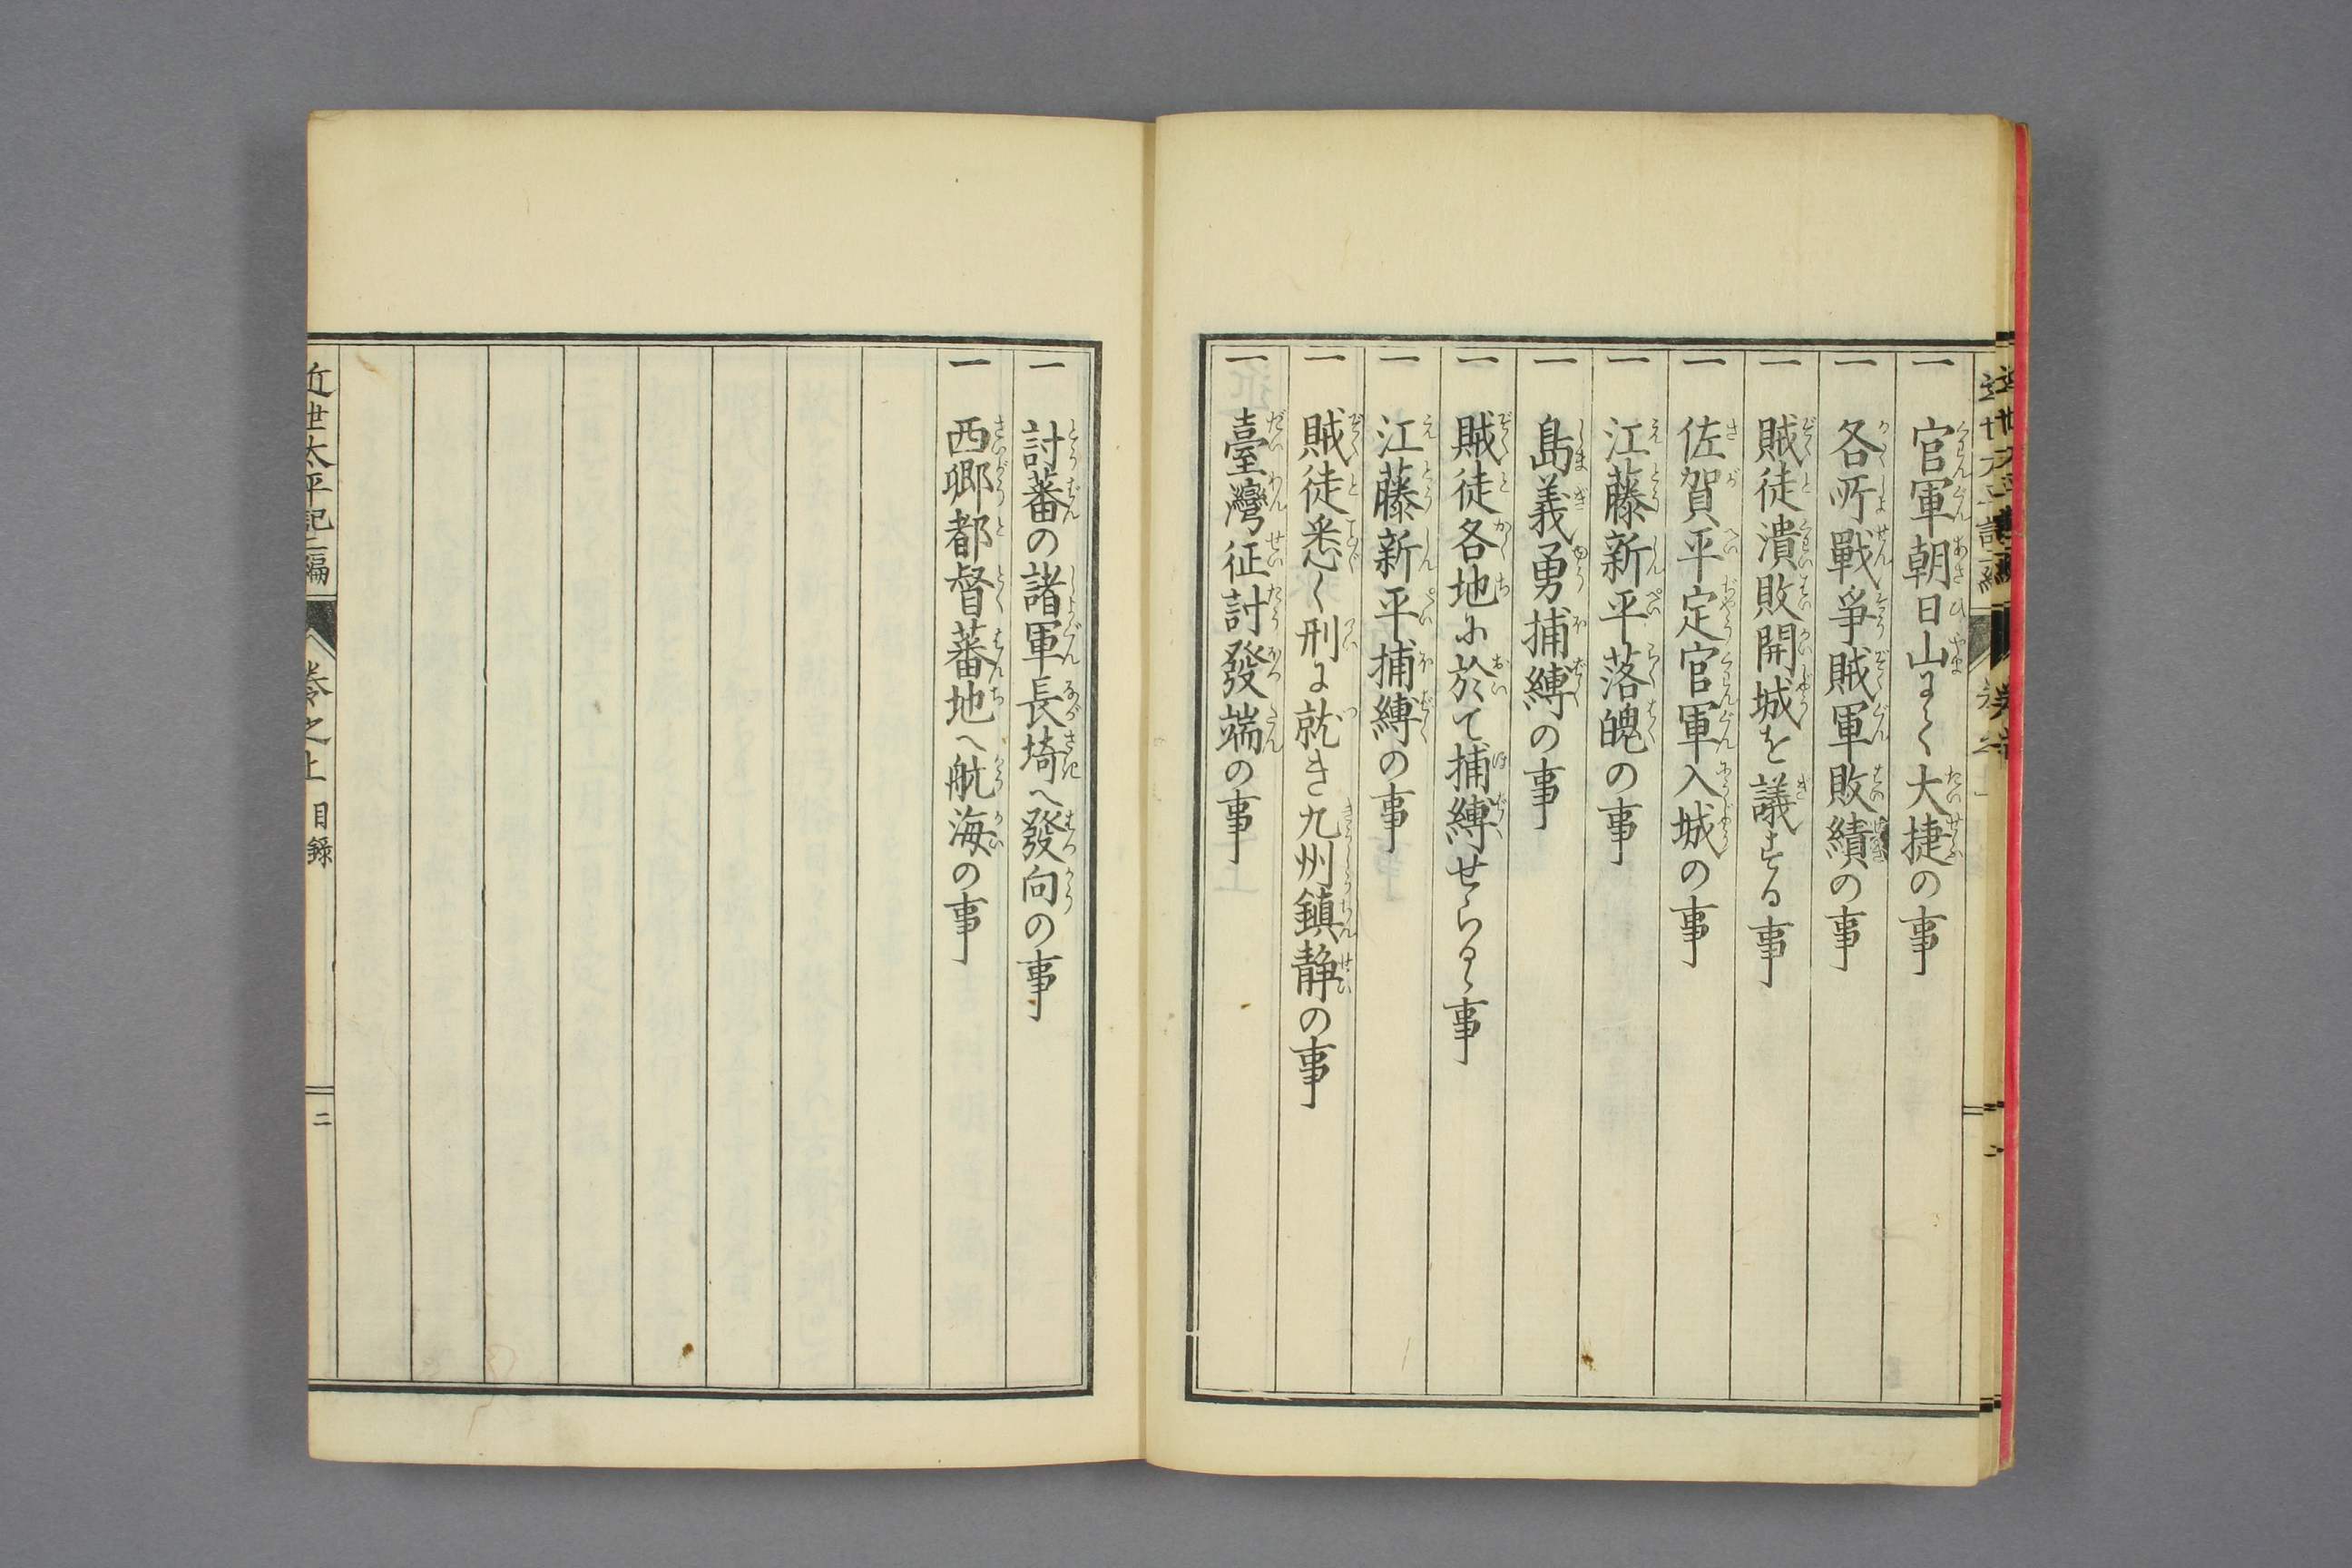 一 官軍朝日山にて大捷の事
一 各所戰爭賊軍敗績の事
一 賊徒潰敗開城を議する事
一 佐賀平定官軍入城の事
一 江藤新平落魄の事
一 島義勇捕縛の事
一 賊徒各地に於て捕縛せらるゝ事
一 江藤新平捕縛の事
一 賊徒悉く刑に就き九州鎮静の事
一 臺灣征討發端の事
一 討蕃の諸軍長埼へ發向の事
一 西郷都督蕃地へ航海の事
近世太平記二編 巻之上 目録 二